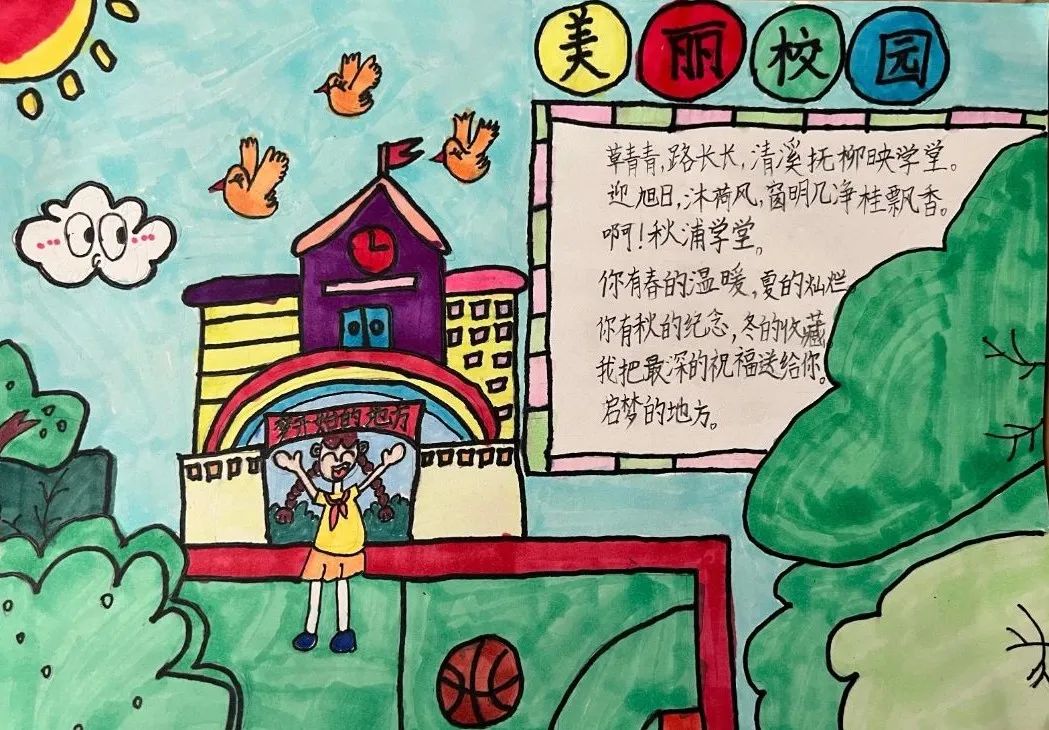 美丽校园
草青青,路长长,清溪抚柳映学堂。
迎旭日,沐荷风,窗明几净桂飘香。
啊!秋浦学堂。
你有春的温暖,夏的灿烂
你有秋的纪念,冬的收藏
我把最深的祝福送给你。
启梦的地方。
梦开始的地方